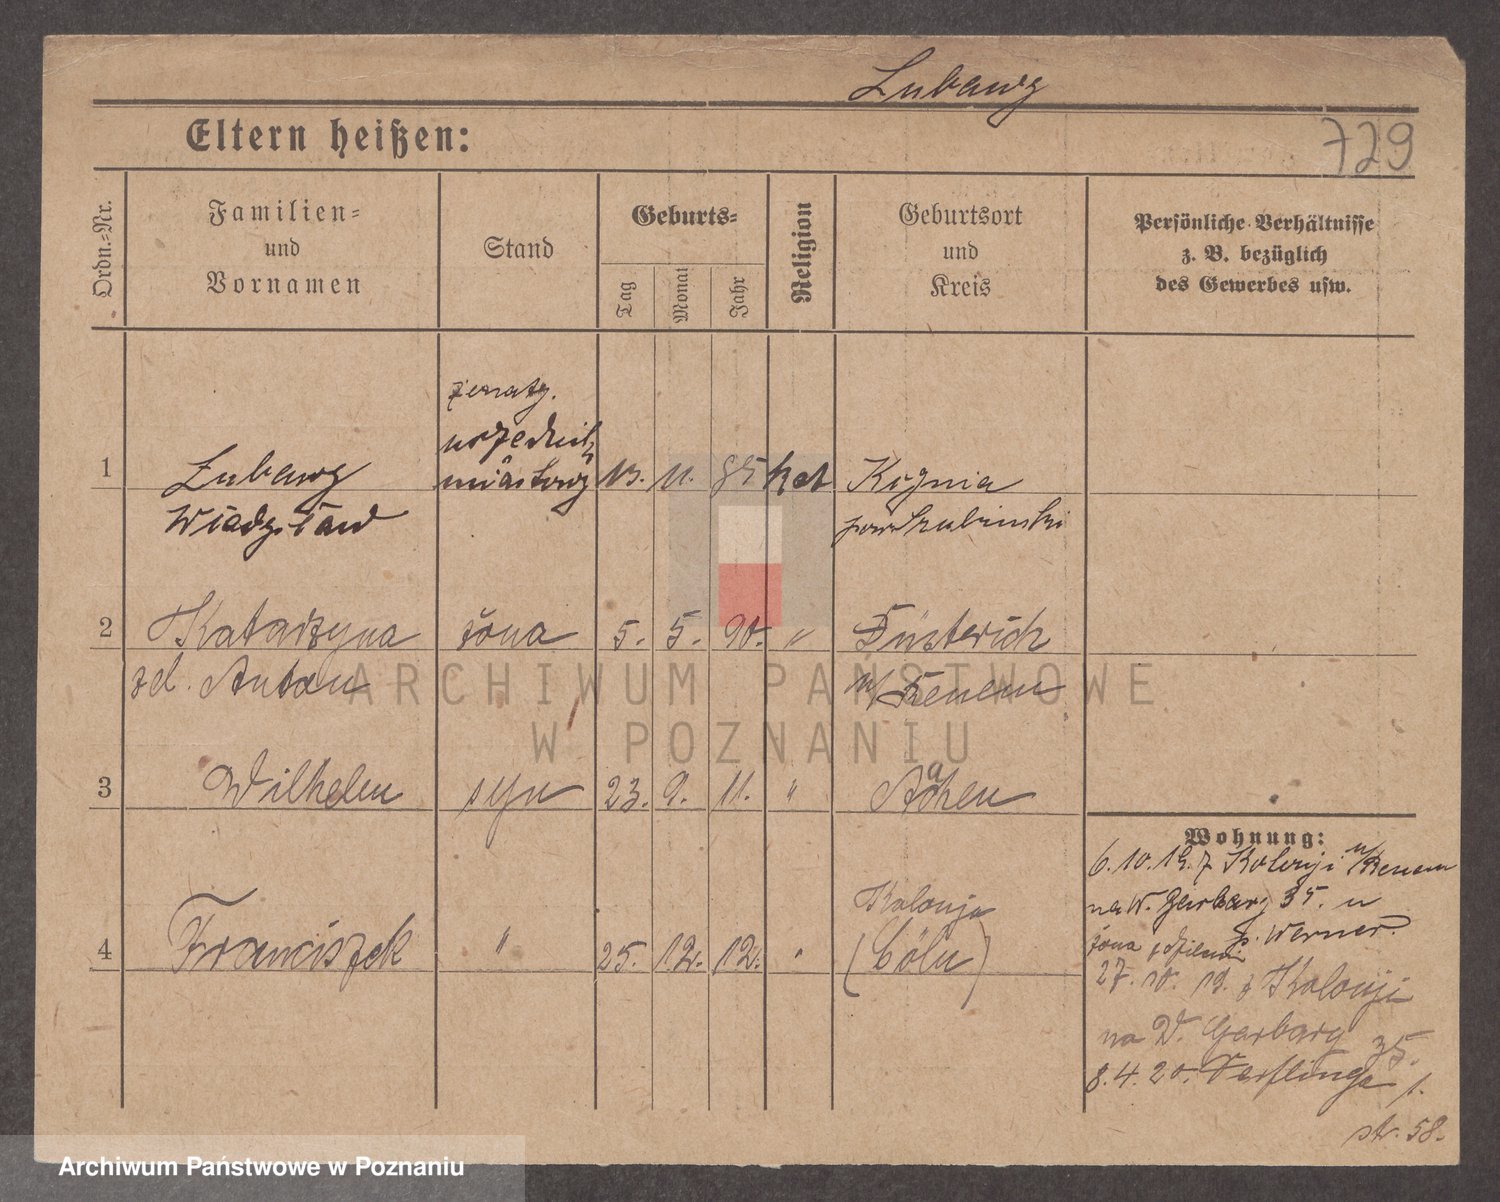 Lubawy
Eltern heißen:
729
Ordn.-Nr.
Familien-
und
Vornamen
Stand
Geburts-
Tag
Monat
Jahr
Religion
Geburtsort
und
Kreis
Persönliche Verhältnisse
z. B. bezüglich
des Gewerbes usw.
żonaty.
urzednik
miastowy
1
Lubawy
13. 11. 85 kat
Władysław
2
Katarzyna
żona
5. 5. 90. "
zd. Anton
3
Wilhelm
syn
23. 9. 11. "
Aachen
Wohnung:
6. 10. 19. z Kolonji n/Renem
na W. Garbary 35. u
żona p. Werner
4
Franciszek
"
25. 12. 12. "
Kolonja
(Cöln)
27. 10. 19. z Kolonji
na W. Garbary 35.
8. 4. 20.
str. 58.
ARCHIWUM PAŃSTWOWE
W POZNANIU
Archiwum Państwowe w Poznaniu